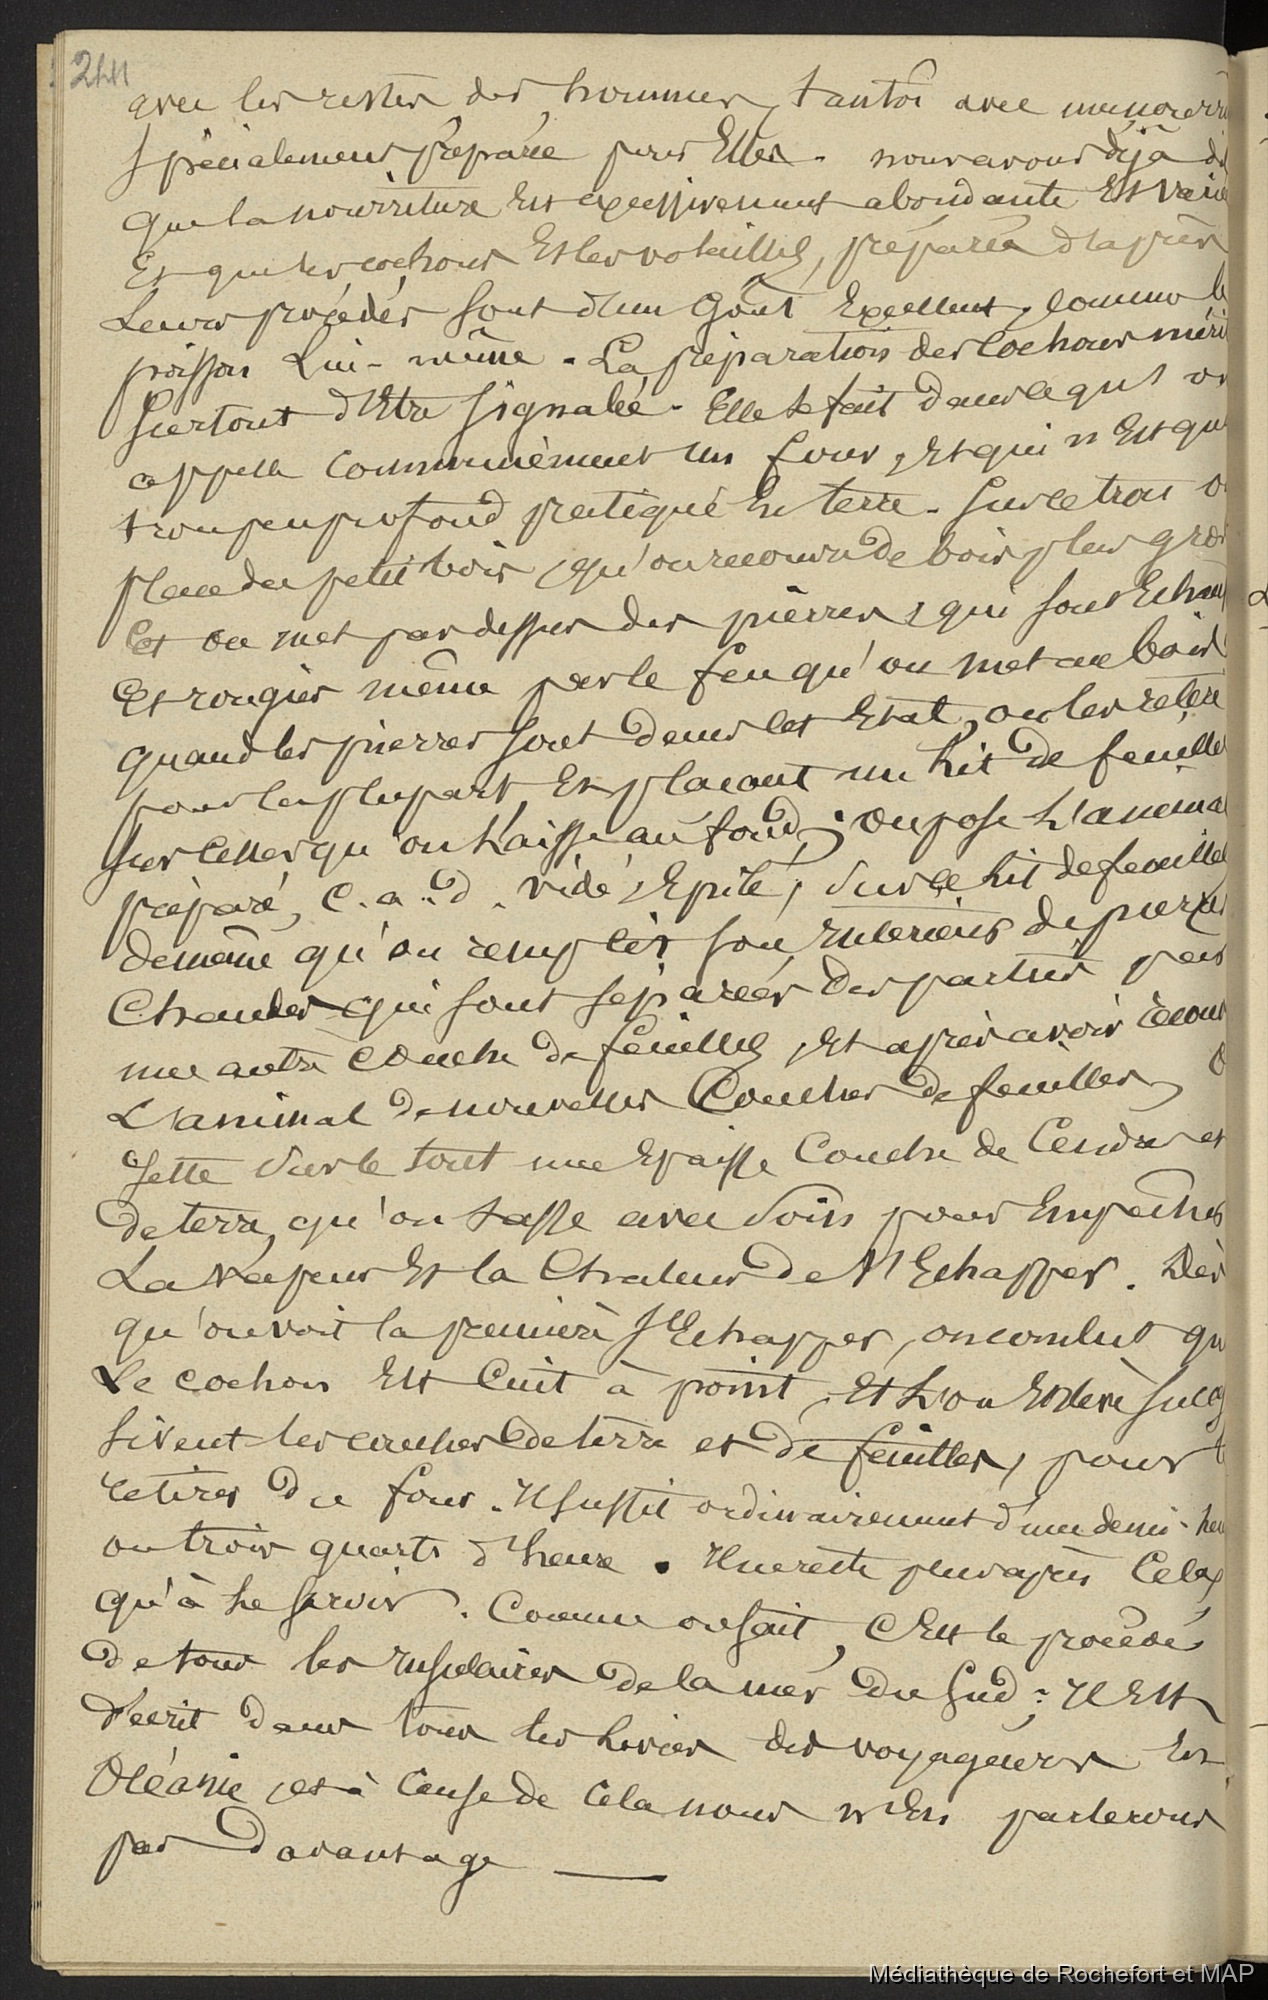 244
avec les restes des hommes, tantôt avec une nourri
spécialement préparée pour Elles. nous avons déjà di
que la nourriture Est excessivement abondante Et varié
Et que les cochons Et les volailles, préparés d'après
Leurs procédés sont d'un Goût Excellent, comme le
poisson Lui-même. La préparation des Cochons méri
surtout d'Etre signalé. Elle se fait dans ce qu'on
appelle communèment un four, Et qui n'Est qu
trou peu profond pratiqué En terre. Sur ce trou o
place du petit bois, qu'on recouvre de bois plus gros
Et on met par dessus des pièrres, qui sont Echau
Et rougies même par le feu qu'on met au bois.
quand les pierres sont dans cet Etat, on les retire
pour la plupart En plaçant un Lit de feuilles
sur celles qu'on Laisse au fond; On pose L'anima
préparé, c.a.d. vidé, Epilé, sur ce Lit de feuilles
de même qu'on remplit son Intérieur de pierres
Chaudes qui sont séparées des parties par
une autre Couche de feuilles, Et après avoir recouv
L'animal de nouvelles Couches de feuilles, O
Jette sur le tout une Epaisse Couche de Cendre et
de terre, qu'on tasse avec soin pour Empêcher
La Vapeur Et la Chaleur de s'Echapper. Dès
qu'on voit la première s'Echapper, on conclut qu
Le cochon Est Cuit à point, Et L'on Enlève succes
sivent les couches de terre et de feuilles, pour l
retirer du four. Il suffit ordinairement d'une demi-heu
ou trois quarts d'heure. Il ne reste plus après Cela
qu'à Le servir. Comme on sait, C'Est le procédé
de tous les Insulaires de la mer du Sud; Il Est
décrit dans tous les Livres des voyageurs En
Océanie, et à Cause de Cela nous n'En parlerons
pas davantage
Médiathèque de Rochefort et MAP